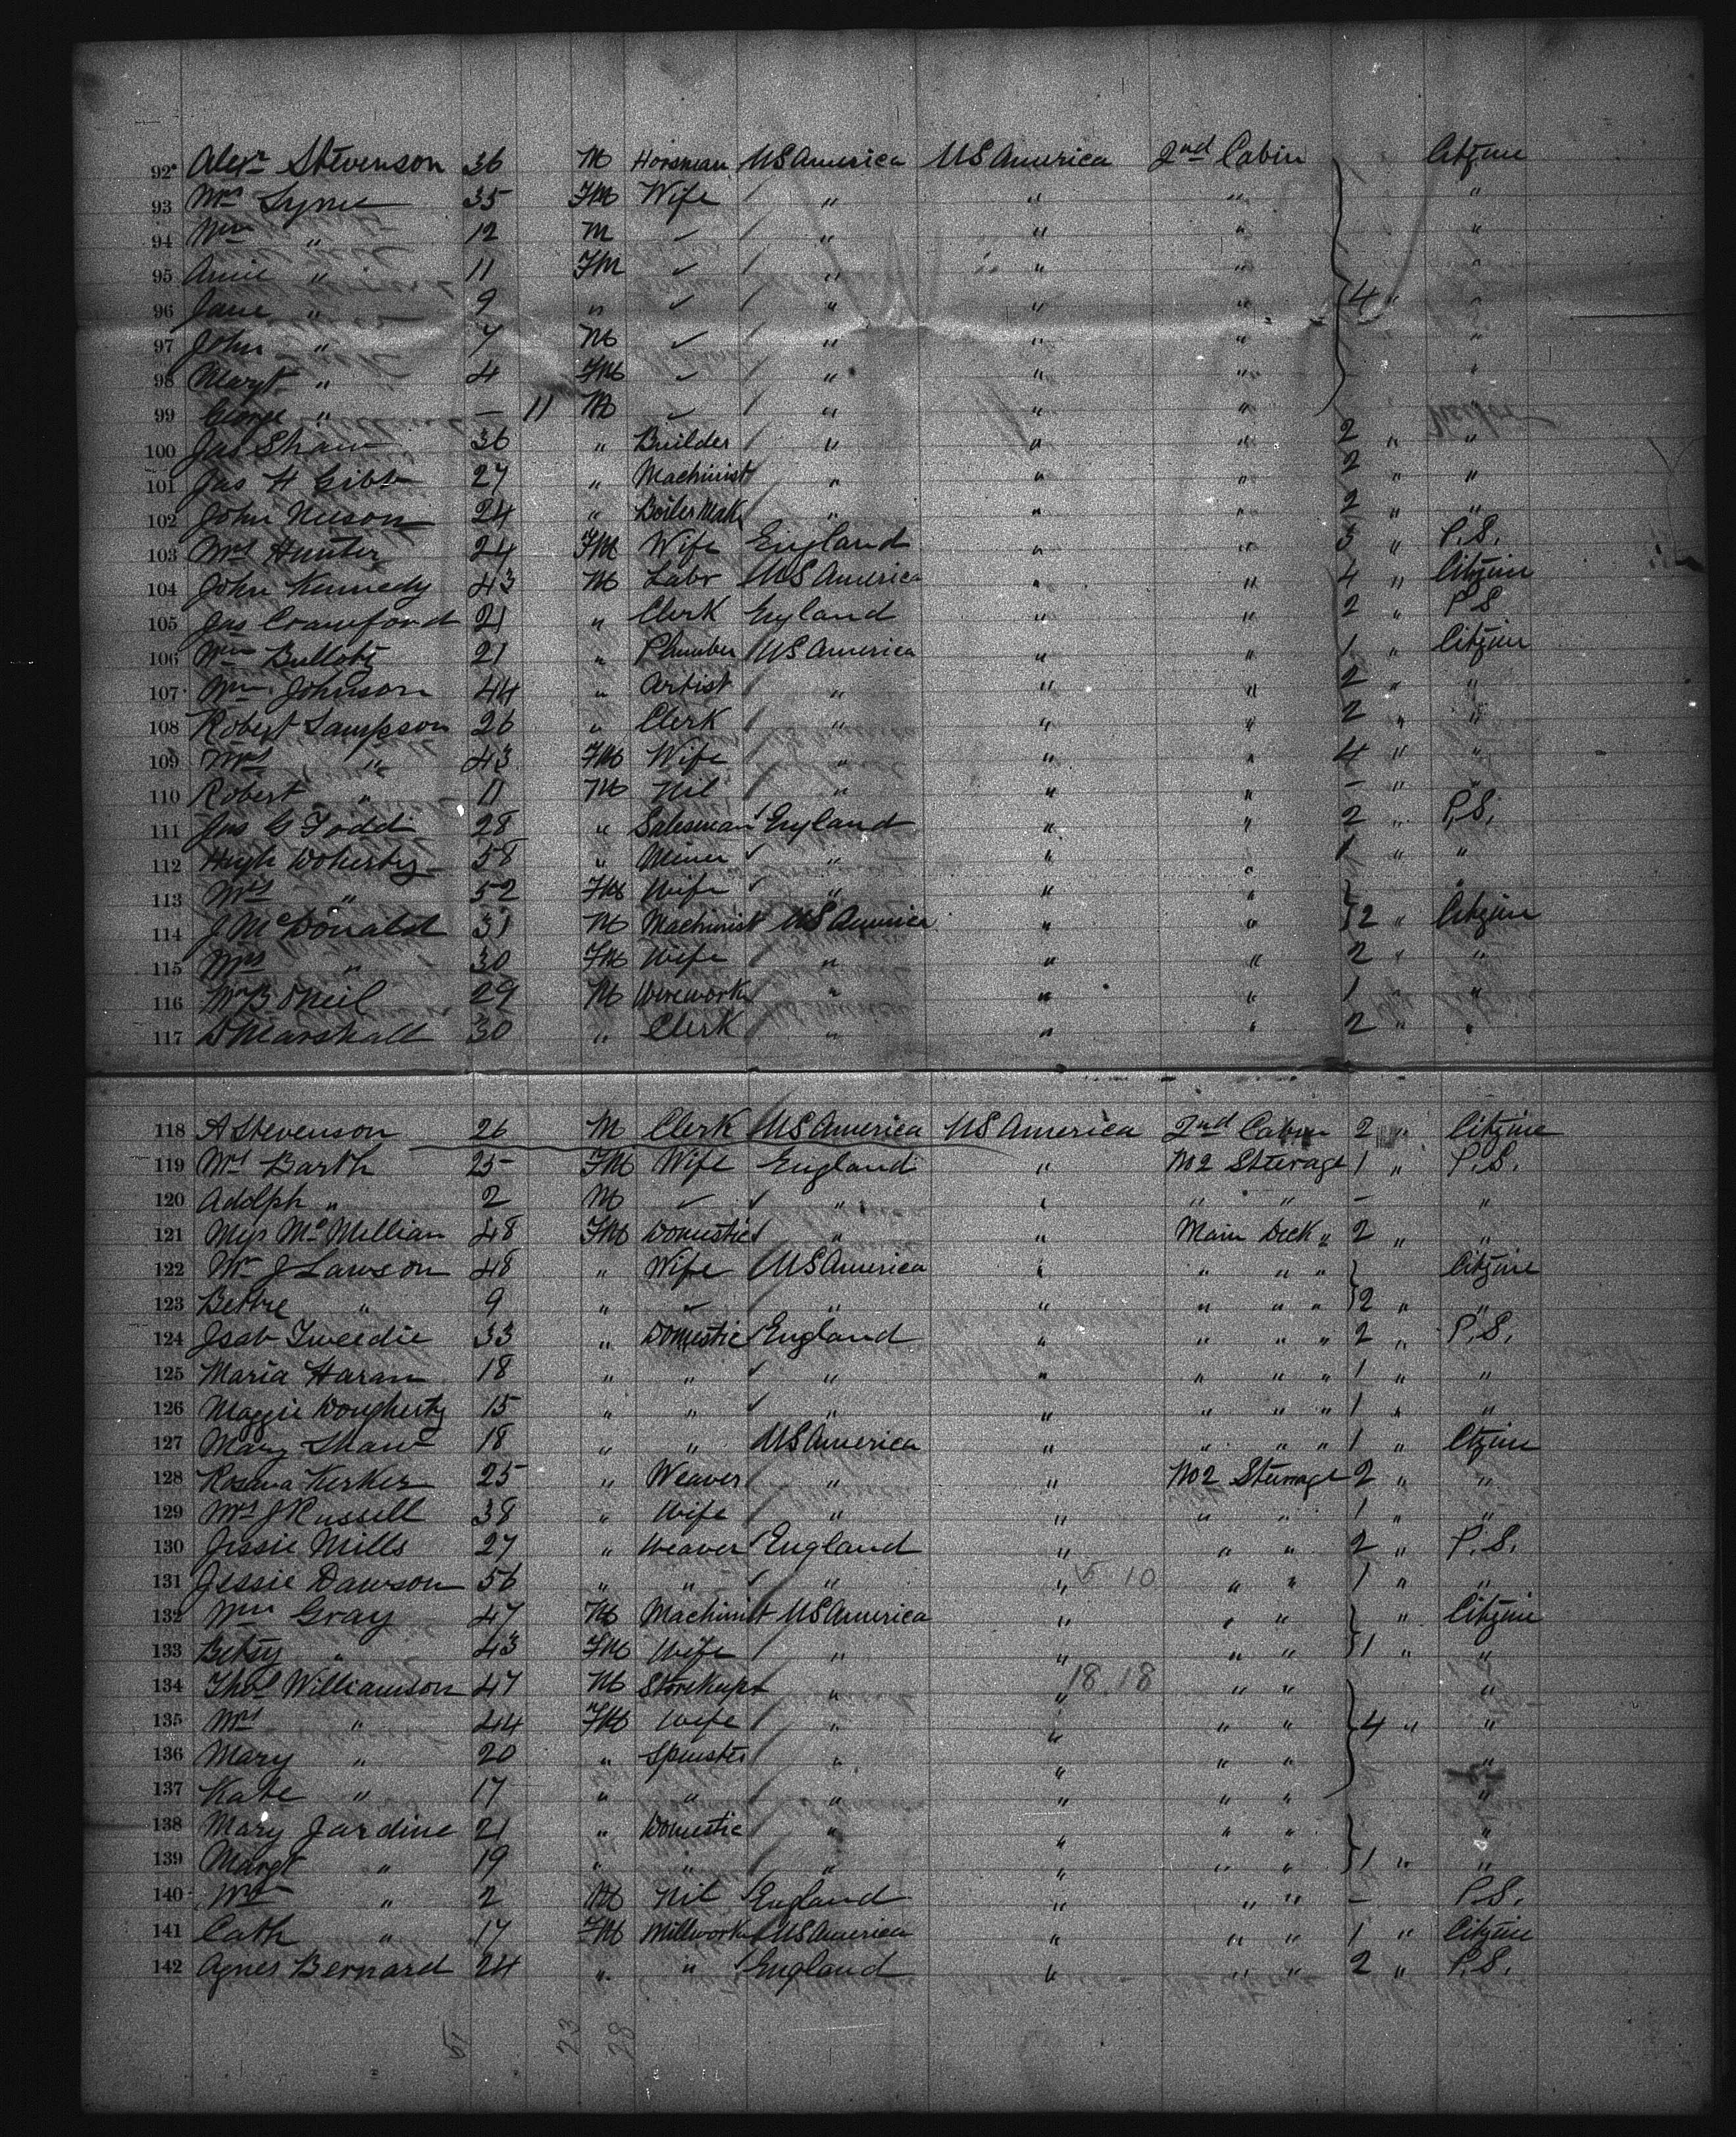 92 Alexr Stevenson 36 M Horsman US America US America 2nd Cabin Citzine
93 Mrs Syme 35 FM Wife / " " " "
94 Wm " 12 M ✓ / " " " "
95 Amie " 11 FM ✓ / " " " "
96 Jane " 9 " ✓ / " " " 4 " "
97 John " 7 M ✓ / " " " "
98 Margt " 4 FM ✓ / " " " "
99 George " — 11 M ✓ / " " "
100 Jas Shaw 36 " Builder / " " " 2 " "
101 Jas H Gibb 27 " Machinist " " " 2 " "
102 John Neeson 24 " Boiler Mak " " " 2 " "
103 Mrs Hunter 24 FM Wife England " " 3 " P.S.
104 John Kennedy 43 M Labr US America " " 4 " Citzine
105 Jas Crawford 21 " Clerk England " " 2 " P S
106 Wm Bulloty 21 " Plumber US America " " 1 " Citzine
107 Wm Johnson 44 " Artist / " " " 2 " "
108 Robert Sampson 26 " Clerk / " " " 2 " "
109 Mrs " 43 FM Wife / " " " 4 " "
110 Robert " 11 M Nil / " " " – " "
111 Jas G Todd 28 " Salesman England " " 2 " P.S.
112 Hugh Doherty 58 " Miner ✓ " " " 1 " "
113 Mrs " 52 FM Wife ✓ " " " "
114 J McDonald 31 M Machinist US America " " 2 " Citzine
115 Mrs " 30 FM Wife / " " " 2 " "
116 Wm B ONeil 29 M Wirework " " " 1 "
117 D Marshall 30 " Clerk / " " " 2 " "
118 A Stevenson 26 M Clerk US America US America 2nd Cabin 2 " Citzine
119 Mrs Barth 25 FM Wife England " No 2 Steerage 1 " P.S.
120 Adolph " 2 M ✓ ✓ " " " " – "
121 Miss McMillian 48 FM Domestic " " Main Deck " 2 " "
122 Mrs J Lawson 48 " Wife US America " " " " Citzine
123 " 9 " ✓ / " " " " " 2 " "
124 Isab Tweedie 33 " Domestic England " " " " 2 " P.S.
125 Maria Haran 18 " " ✓ " " " " " 1 " "
126 Maggie Dougherty 15 " " ✓ " " " " " 1 " "
127 Mary Shaw 18 " " US America " " " " 1 " Ctzine
128 Rosana Kerker 25 " Weaver / " " No 2 Steerage 2 " "
129 Mrs J Russell 38 " Wife / " " " " 1 " "
130 Jessie Mills 27 " Weaver England " " " 2 " P.S.
131 Jessie Dawson 56 " " ✓ " " 10 " " 1 " "
132 Wm Gray 47 M Machinist US America " " " " Citzine
133 Betsy " 43 FM Wife / " " " " 1 " "
134 Thos Williamson 47 M Storekepr " " 18.18 " " "
135 Mrs " 44 FM Wife / " " " " 4 " "
136 Mary " 20 " Spinster / " " " " "
137 Kate " 17 " " / " " " " "
138 Mary Jardine 21 " Domestic " " " " "
139 Margt " 19 " " / " " " " 1 " "
140 Wm " 2 M Nil England " " " – P.S.
141 Cath " 17 FM Millwork US America " " " 1 " Citzine
142 Agnes Bernard 24 " " England " " " 2 " P.S.
51 23 28